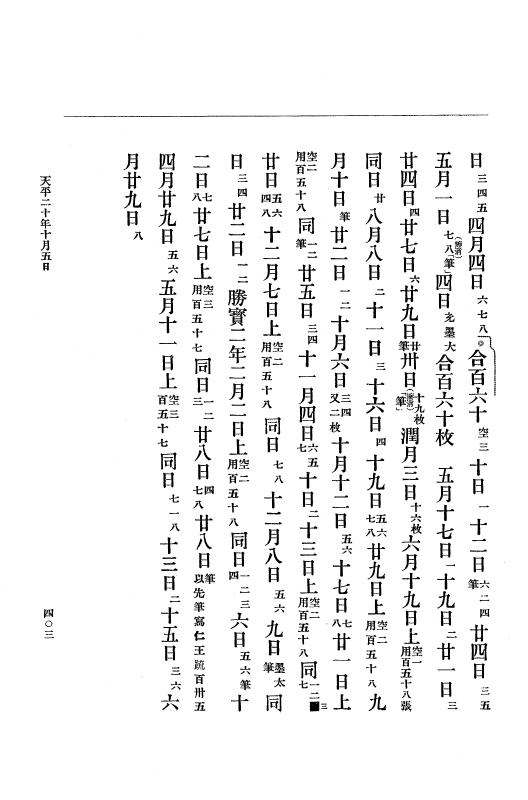 日三四五四月四日六七八合百六十空三十日一十二日六二四筆廿四日三五
五月一日七八「筆」四日充墨大合百六十枚 五月十七日一十九日二廿一日三
廿四日四廿七日六廿九日廿筆卅日十九枚「筆」潤月三日十六枚六月十九日上空一用百五十八張
同日廿八月八日二十一日三十六日四十九日五六七八廿九日上空二用百五十八九
月十日筆廿二日一二十月六日三四又二枚十月十二日五六十七日七八廿一日上
空二用百五十八同一二筆廿五日三四十一月四日六五七十日二十三日上空二用百五十八同一二七■三
廿日五六四八十二月七日上空二用百五十八同日七八十二月八日五六九日墨太筆同
日三四廿二日一二勝寶二年二月二日上空二用百五十八同日一二三四六日五六筆十
二日七八廿七日上空三用百五十七同日一二三廿八日四七八廿八日筆以先筆寫仁王疏百卅五
四月廿九日五六五月十一日上空三百五十七同日七一八十三日二十五日三六六
月廿九日八
天平二十年十月五日
四〇三